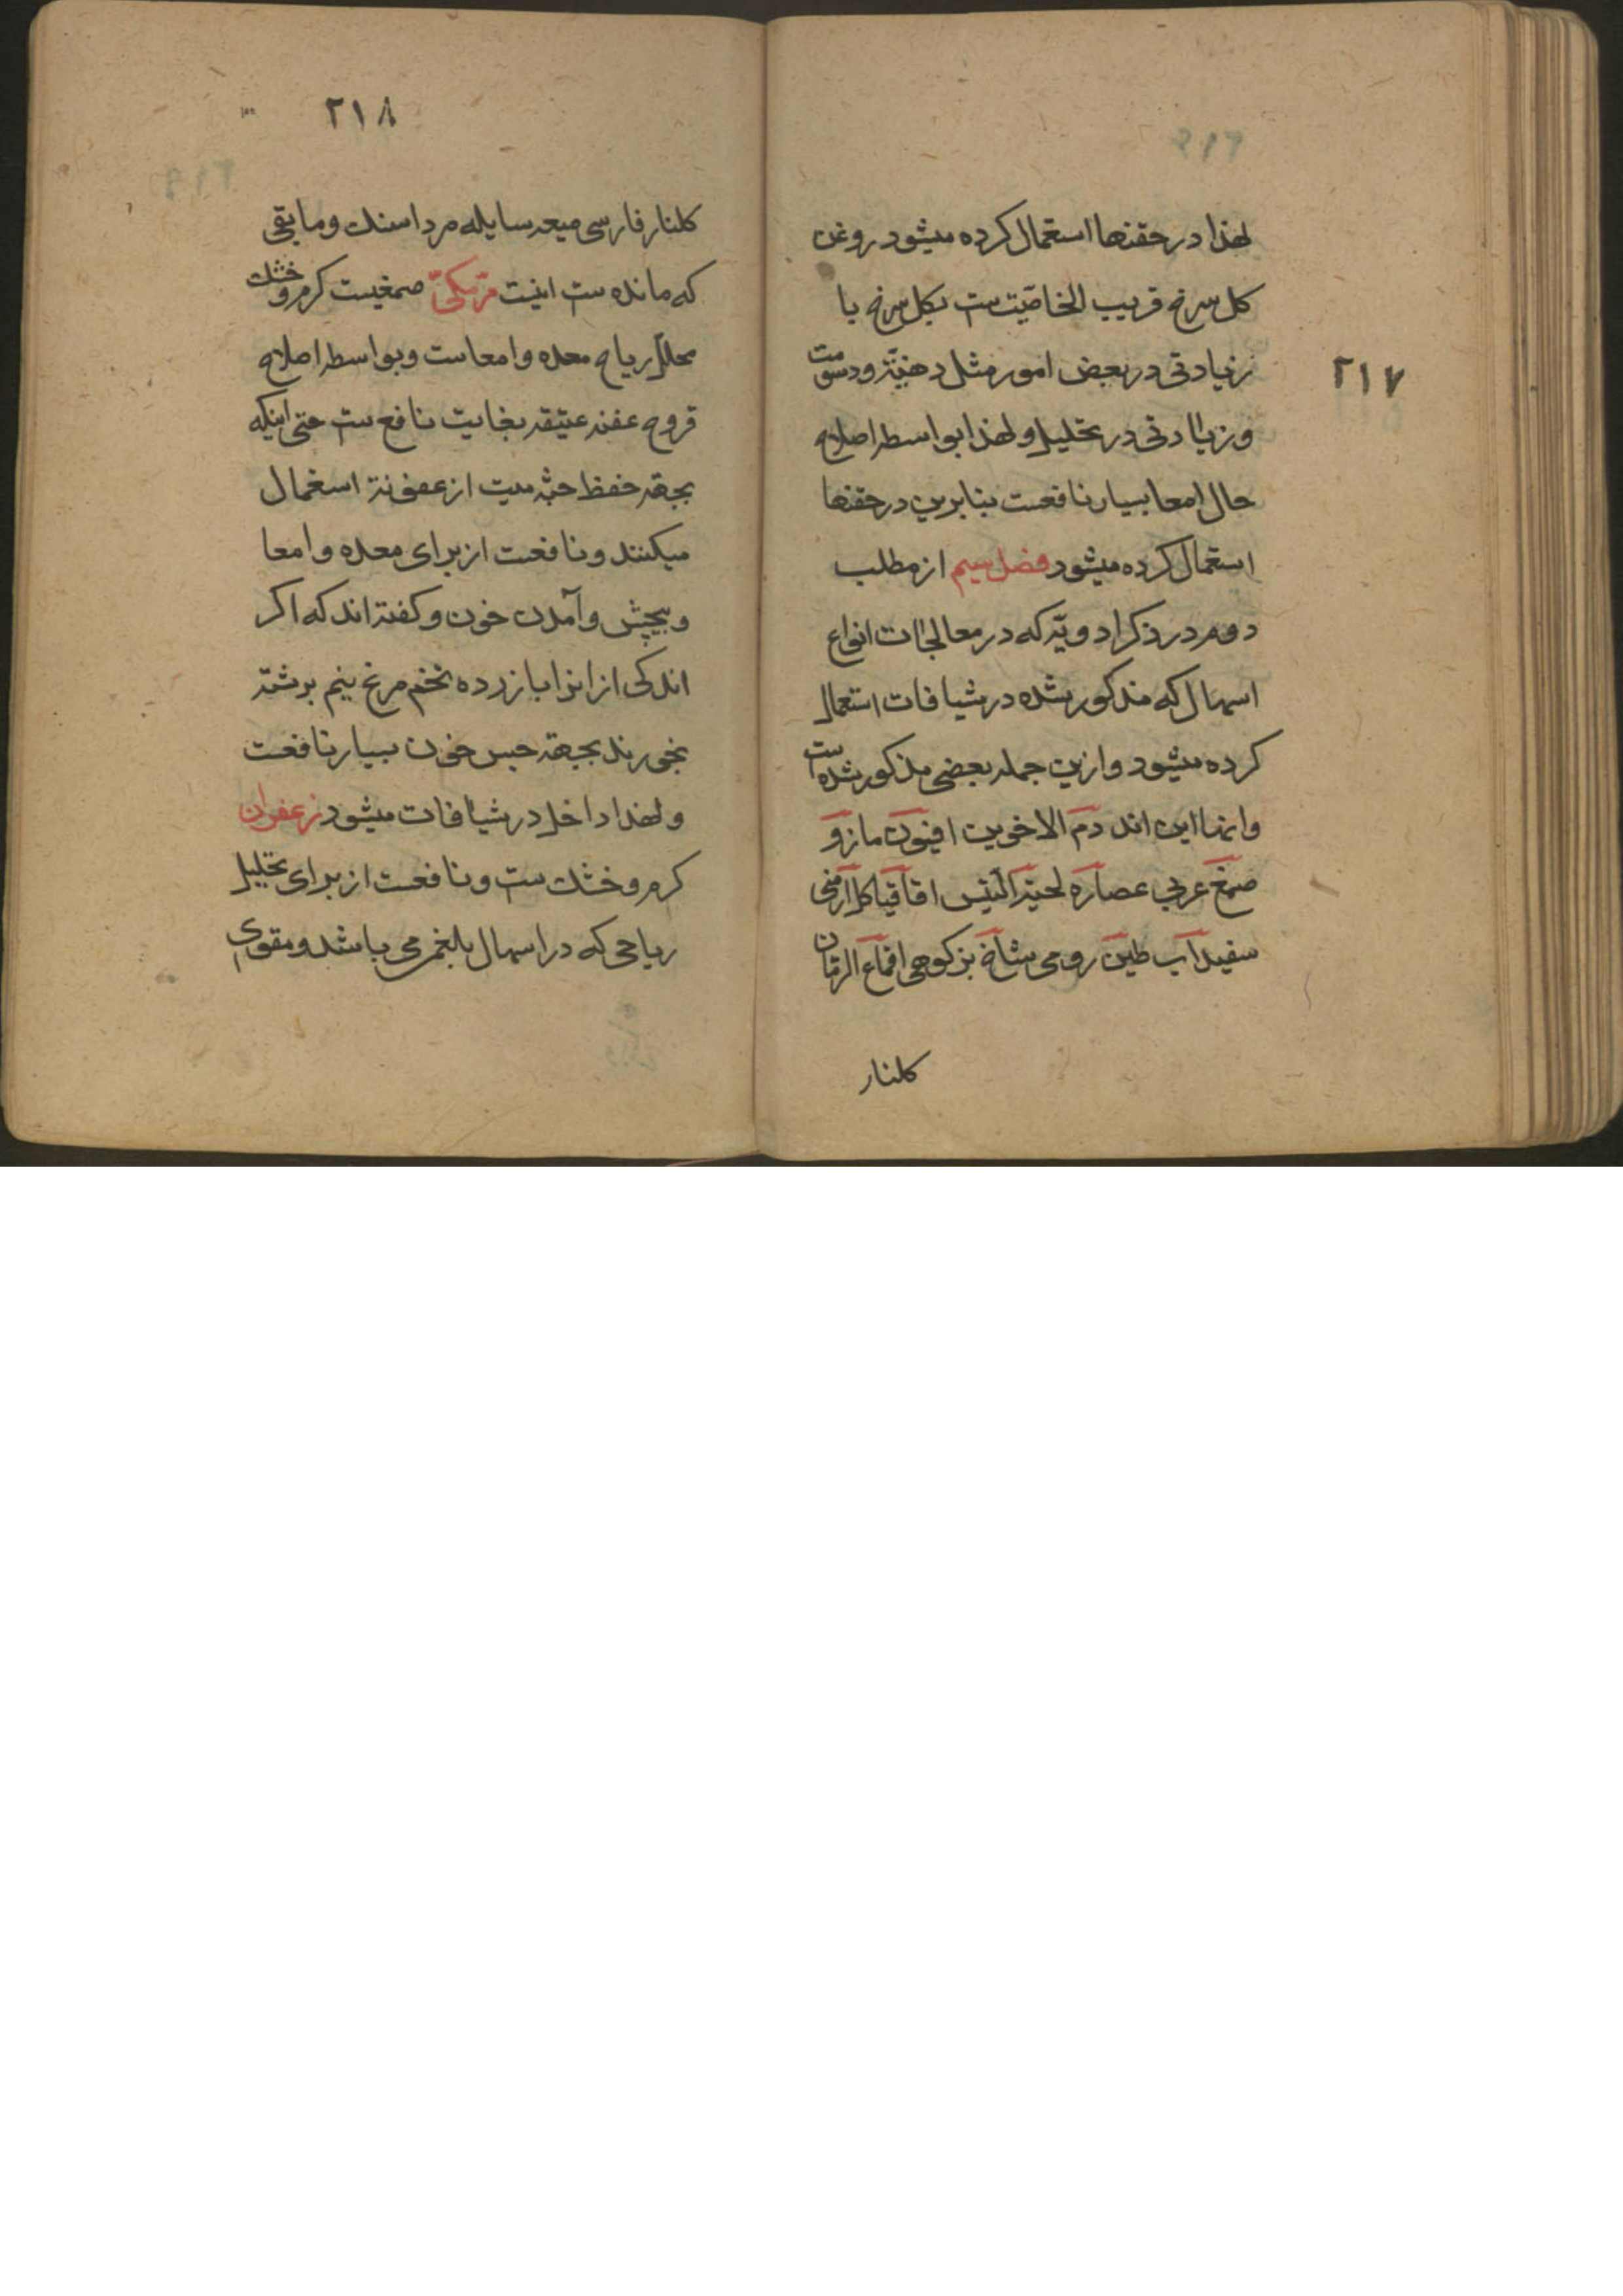 ۲۱۷
لهذا در حقنها استعمال کرده میشود روغن
کل سرخ قریب الخاصیت ست بکل سرخ با
زیادتی در بعض امور مثل دهنیّة ودسومت
و زیادتی در تحلیل و لهذا بواسطه اصلاح
حال امعا بسیار نافعست بنابرین در حقنها
استعمال کرده میشود فصل سیم از مطلب
دوم در ذکر ادویّه که در معالجات انواع
اسهال که مذکور شده در شیافات استعمال
کرده میشود وازین جمله بعضی مذکور شده ست
واینها این اند دم الاخوین افیون مازو
صمغ عربی عصاره لحیة التیس اقاقیا کل ارمنی
سفیداب طین رومی شاخ بز کوهی اقماع الرمّان
کلنار
۲۱۸
کلنار فارسی میعه سایله مرداسنك ومابقی
که مانده ست اینست مرّ مکّی صمغیست کرم وخشك
محلل ریاح معده وامعاست وبواسطه اصلاح
قروح عفنه عتیقه بغایت نافع ست حتی اینکه
بجهة حفظ جثه میت از عفونة استعمال
میکنند ونافعست از برای معده وامعا
وپیچش وآمدن خون وکفته اند که اکر
اندکی از انرا با زرده تخم مرغ نیم برشته
بخورند بجهة حبس خون بسیار نافعست
ولهذا داخل در شیافات میشود زعفران
کرم وخشك ست ونافعست از برای تحلیل
ریاحی که در اسهال بلغم می باشد ومقوی